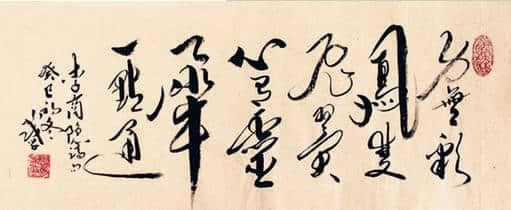 身無彩
鳳雙
飛翼
心有靈
犀
一點通
李商隱詩句
癸巳